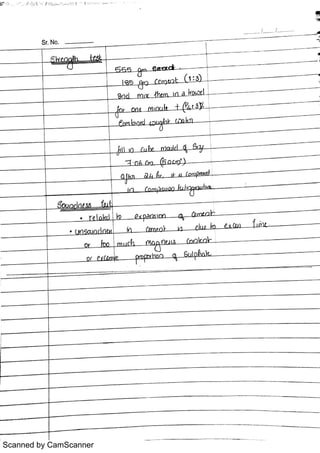 Sr. No.
Strength test
555 gm
185 gm Cement (1:3)
and mix them in a trowel
for one minute + (P/4 + 3)%
Combined weight water
fill in cube mould of Say
7.06 cm
after 24 hr. it is
in
Soundness test
• related to expansion of cement
• unsoundness in cement is due to excess lime
or too much magnesia content
or excessive proportion of Sulphate
Scanned by CamScanner